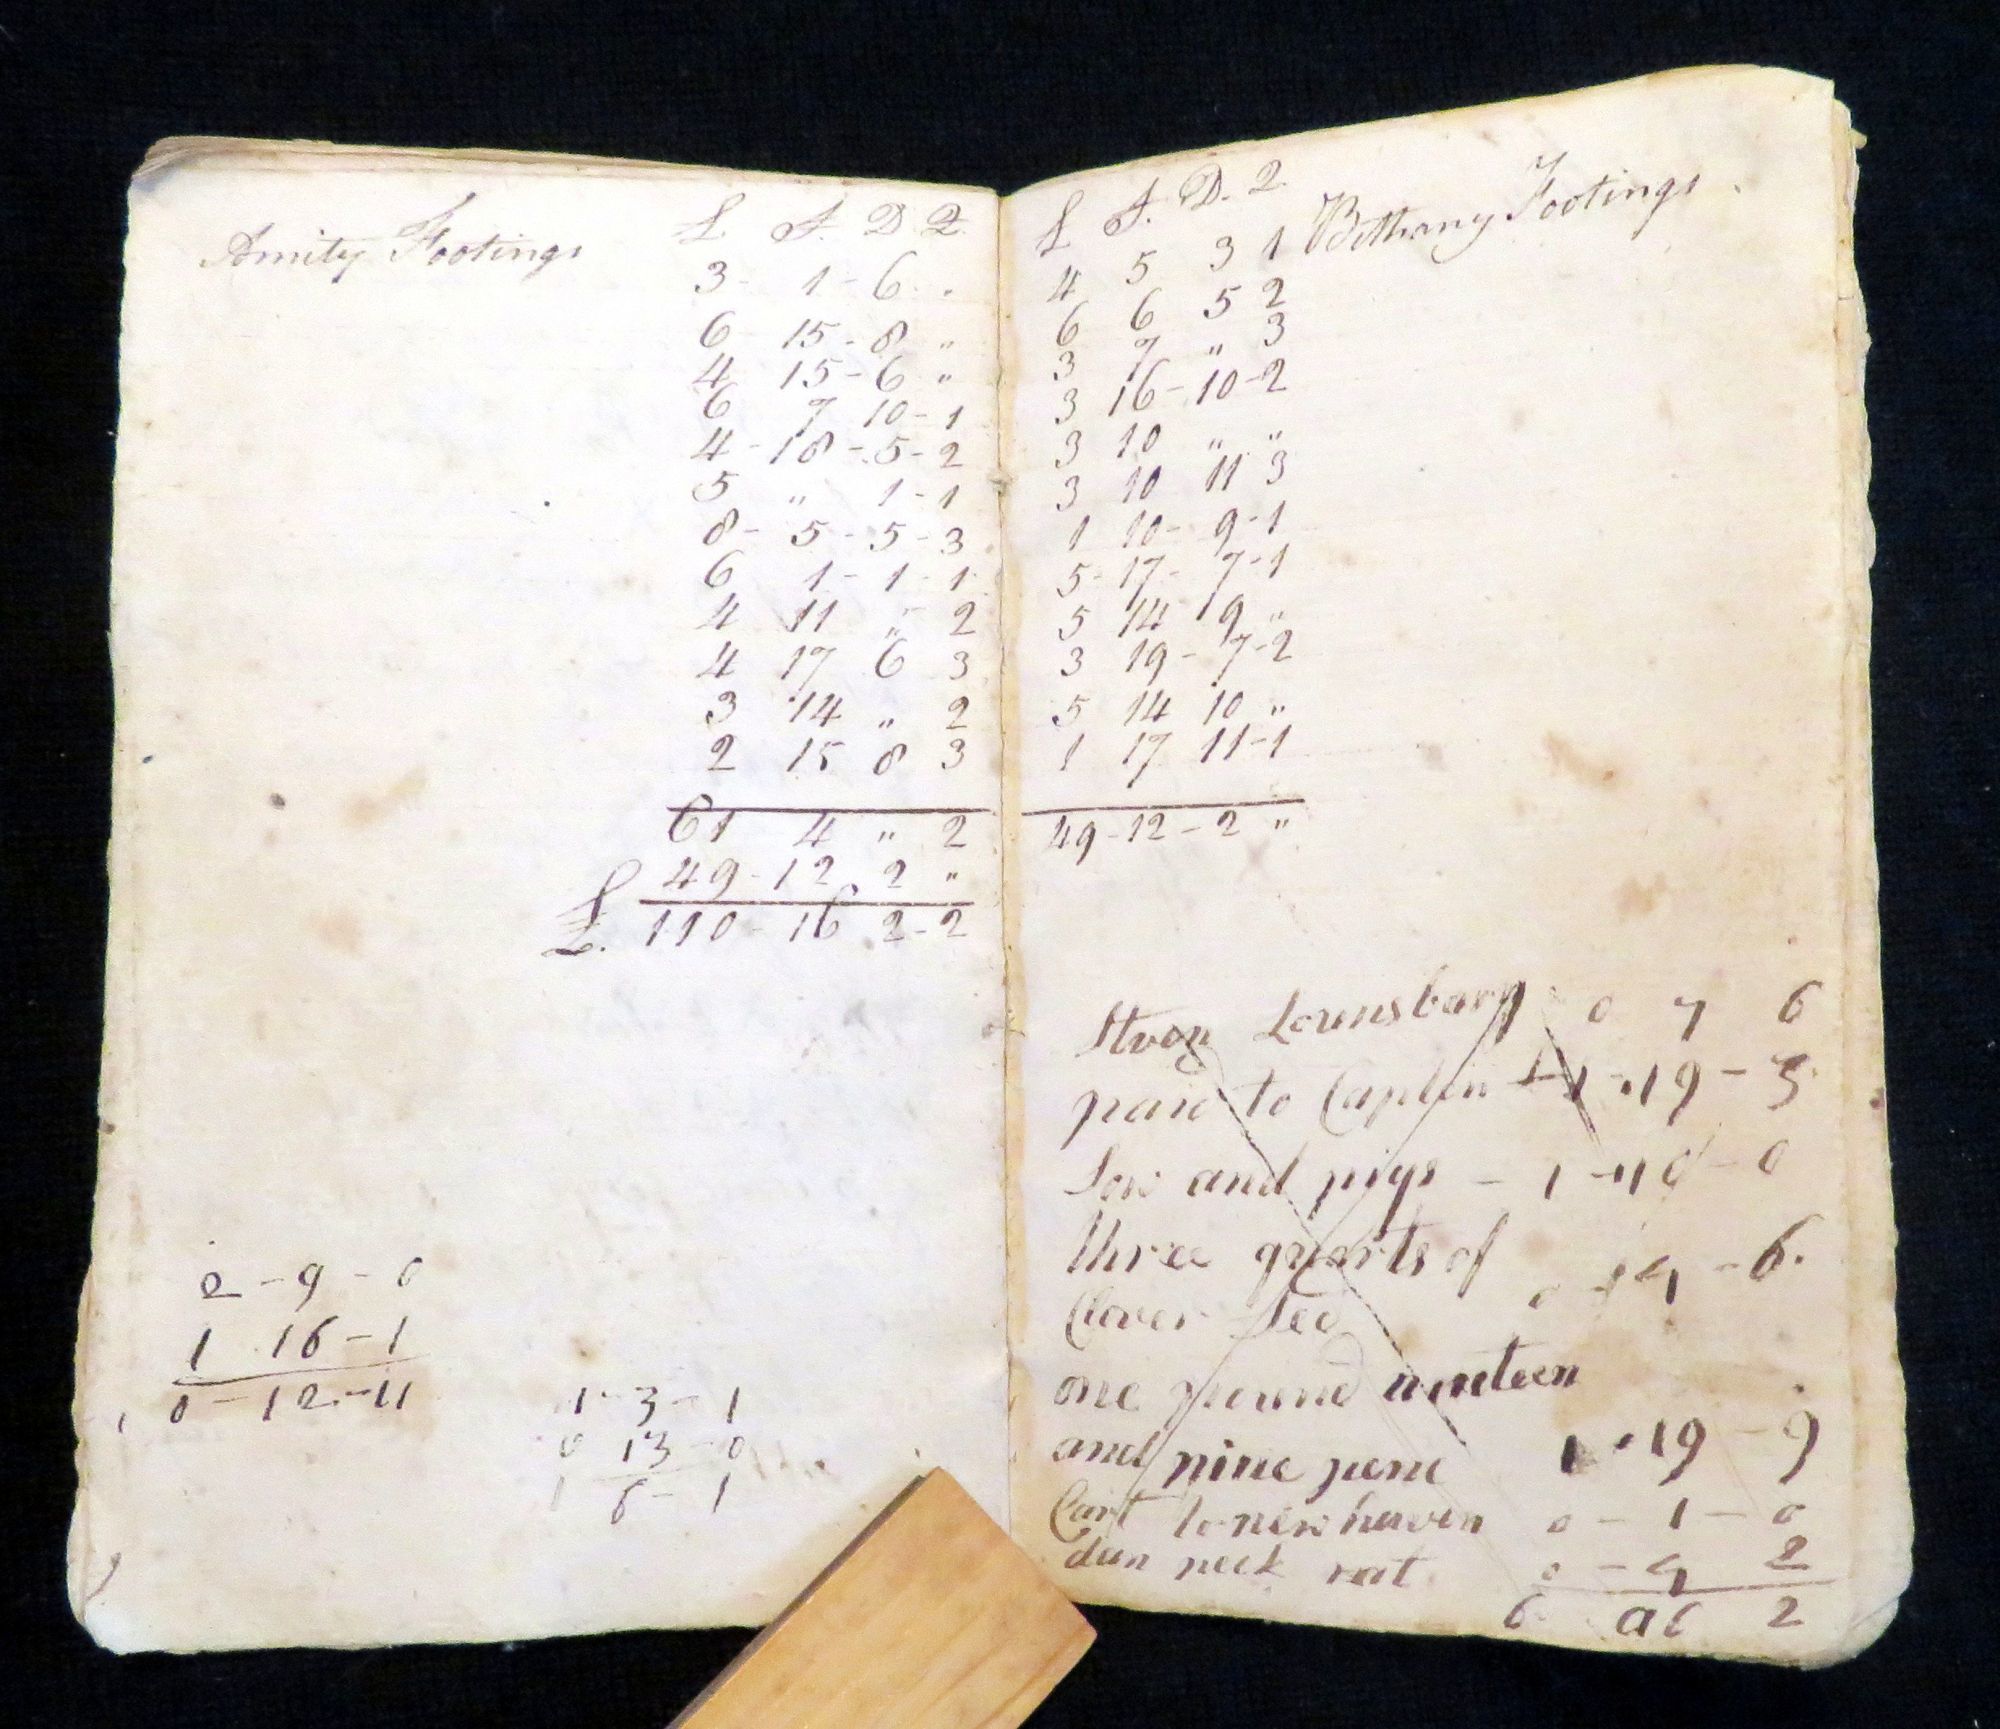 Amity Footings £. S. D. Q.
3 - 1 - 6 . "
6 15 - 8 "
4 15 - 6 "
6 7 10 - 1
4 - 18 - 5 - 2
5 " 1 - 1
8 - 5 - 5 - 3
6 1 - 1 - 1
4 11 " 2
4 17 6 3
3 14 " 2
2 15 8 3
61 4 " 2
49 - 12 2 "
£. 110 - 16 2 - 2
2 - 9 - 0
1 16 - 1
0 - 12 - 11
1 - 3 - 1
0 13 - 0
1 6 - 1
£ S. D. Q. Bethany Footings
4 5 3 1
6 6 5 2
3 7 " 3
3 16 - 10 - 2
3 10 " "
3 10 11 3
1 10 - 9 - 1
5 - 17 - 7 - 1
5 14 9 "
3 19 - 7 - 2
5 14 10 "
1 17 11 - 1
49 - 12 - 2 "
Lounsbary 0 7 6
paid to Captin 1 - 19 - 3
Sow and pigs - 1 - 10 - 0
three quarts of
Clover Sed 0 - 4 - 6.
one pound nineteen
and nine penc 1 - 19 - 9
Cart to newhaven 0 - 1 - 0
dun neck rat 0 - 4 2
6 2